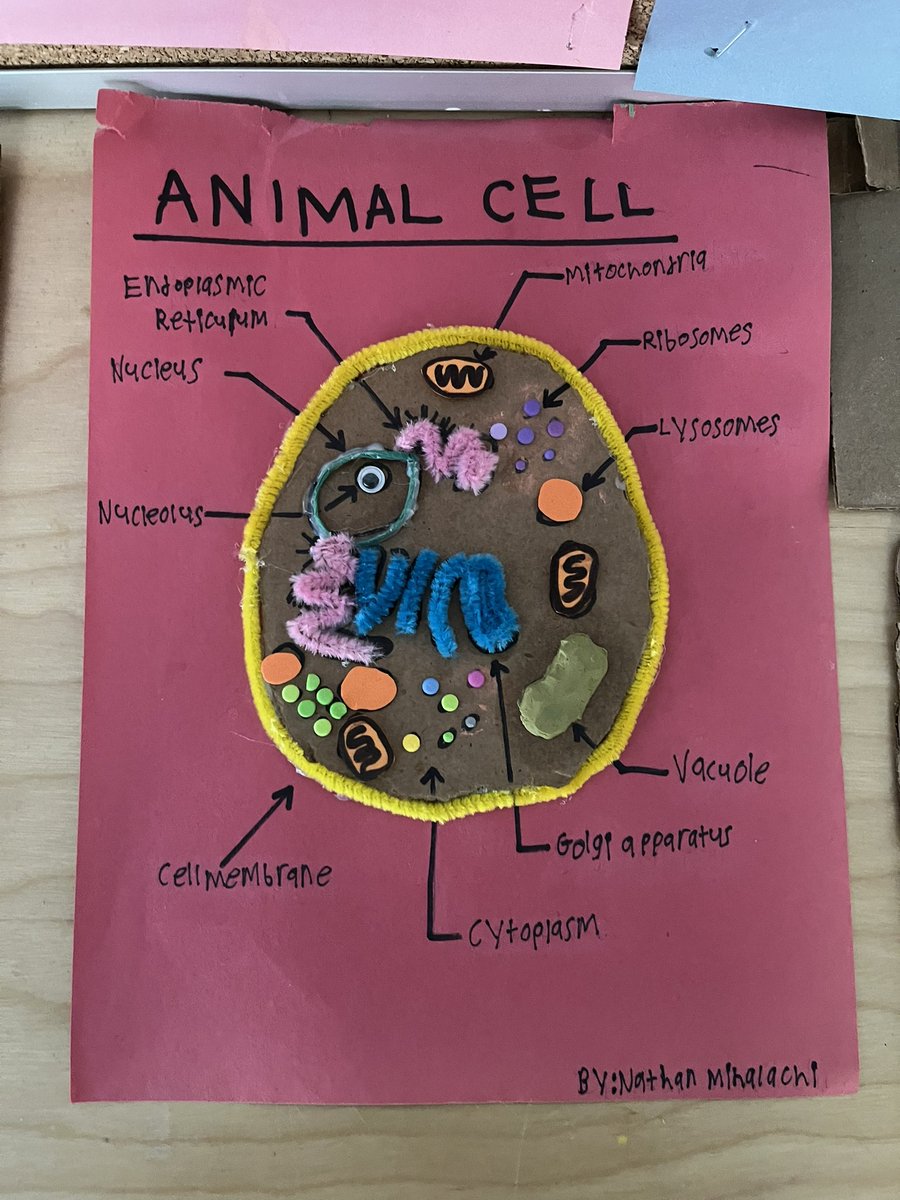 ANIMAL CELL
Mitochondria
Endoplasmic
Reticulum
Ribosomes
Nucleus
Lysosomes
Nucleolus
Vacuole
Golgi apparatus
Cell membrane
Cytoplasm
BY: Nathan Mihalachi